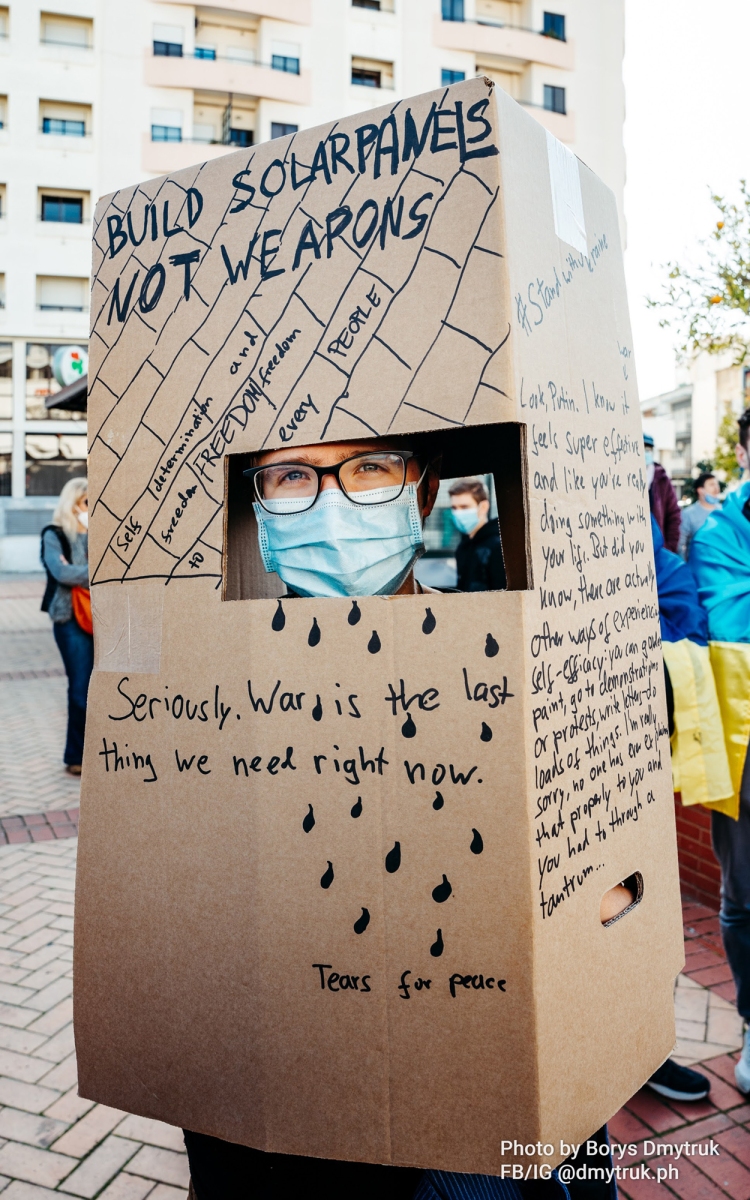 BUILD SOLARPANELS
NOT WEAPONS
self determination and
freedom FREEDOM freedom
to every PEOPLE
Seriously. War is the last
thing we need right now.
Tears for peace
#Stand with Ukraine
War
Look, Putin. I know it
feels super effective
and like you're really
doing something with
your life. But did you
know, there are actually
other ways of experiencing
self-efficacy: you can
paint, go to demonstrations
or protests, write letters - do
loads of things. I'm really
sorry, no one has ever explained
that properly to you and
you had to through a
tantrum...
Photo by Borys Dmytruk
FB/IG @dmytruk.ph